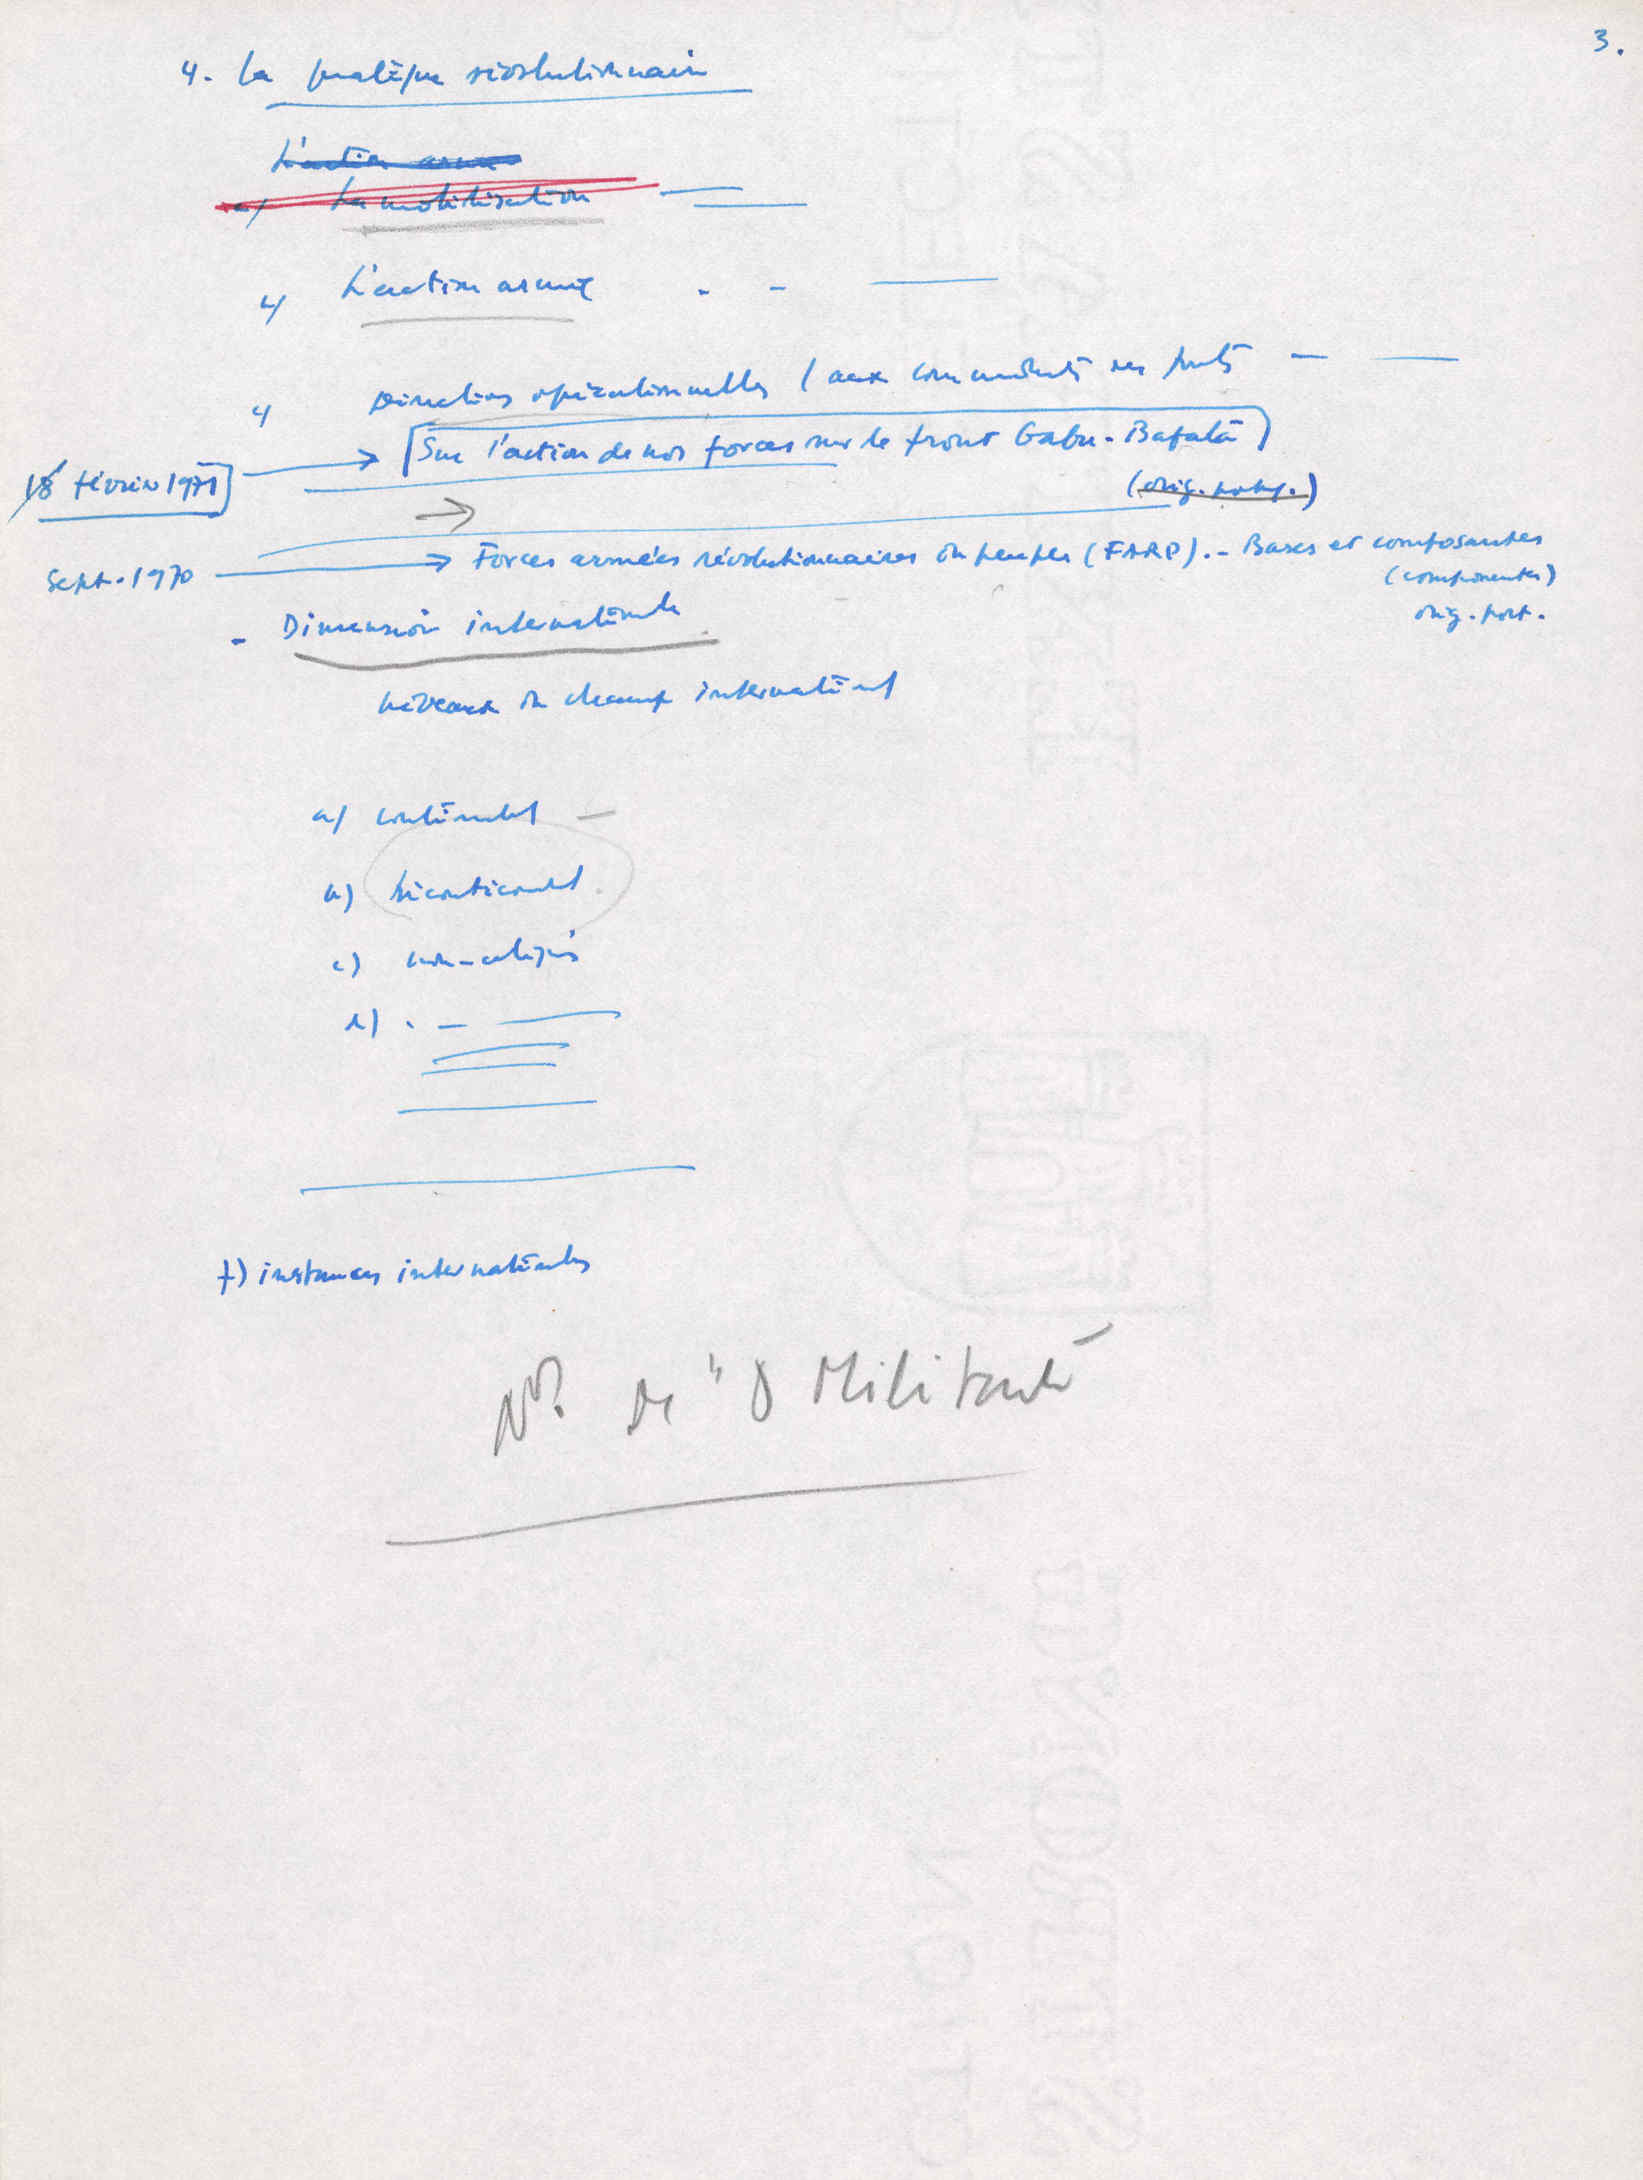 3.
4. La pratique révolutionnaire
L'action armée
a) La mobilisation
L'action armée
Directives opérationnelles (aux commandants des fronts
Sur l'action de nos forces sur le front Gabu-Bafatá)
18 février 1971
(orig. portug.)
Sept. 1970 → Forces armées révolutionnaires du peuple (FARP). - Bases et composantes
(componentes)
orig. port.
- Dimension internationale
niveaux du champ international
a) continental
b) tricontinental
c) non-alignés
d) . -
f) instances internationales
Nº de "O Militante